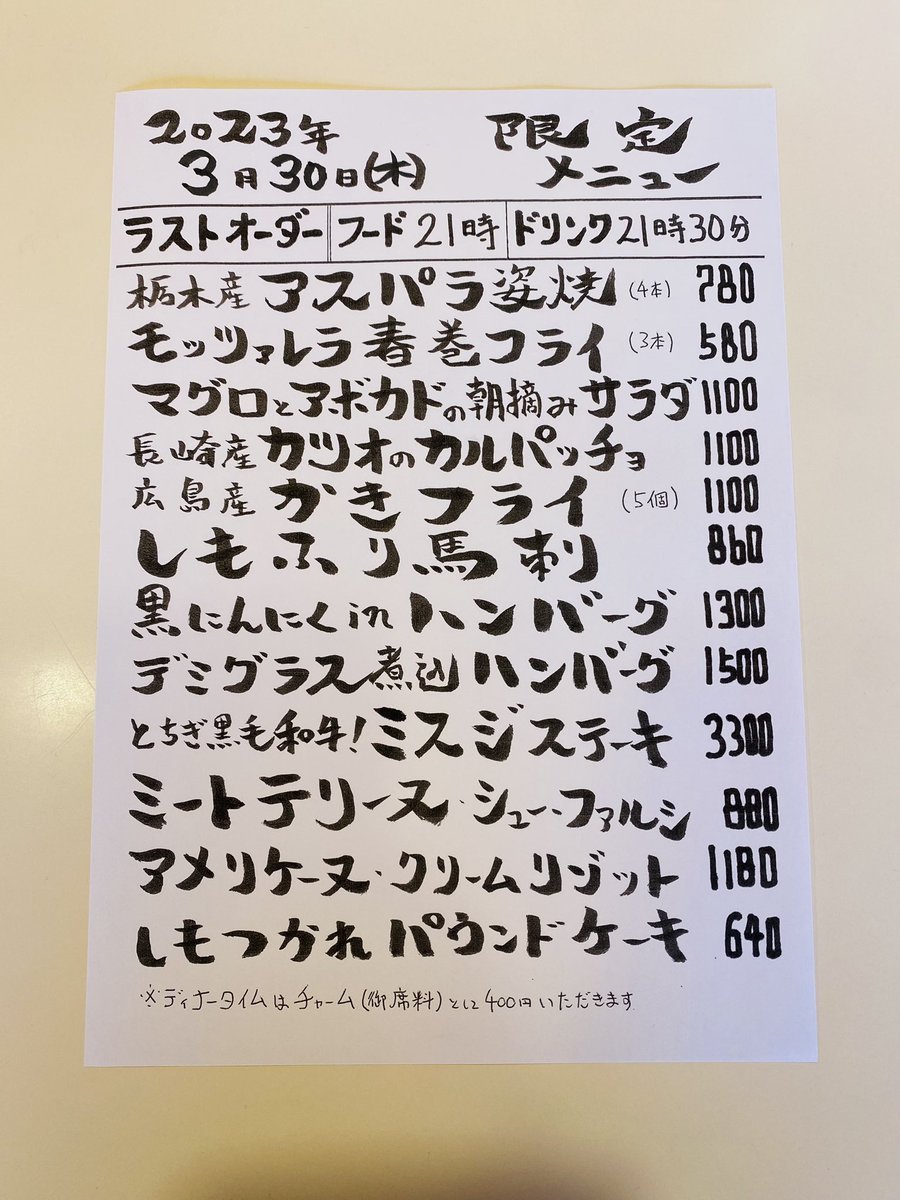 2023年 限定
3月30日(木) メニュー
ラストオーダー フード21時 ドリンク21時30分
栃木産 アスパラ姿焼 (4本) 780
モッツァレラ春巻フライ (3本) 580
マグロとアボカドの朝摘みサラダ 1100
長崎産 カツオのカルパッチョ 1100
広島産 かきフライ (5個) 1100
しもふり馬刺 860
黒にんにくinハンバーグ 1300
デミグラス煮込ハンバーグ 1500
とちぎ黒毛和牛!ミスジステーキ 3300
ミートテリーヌ・シュー・ファルシ 880
アメリケーヌ・クリームリゾット 1180
しもつかれパウンドケーキ 640
※ディナータイムはチャーム(御席料)として400円いただきます